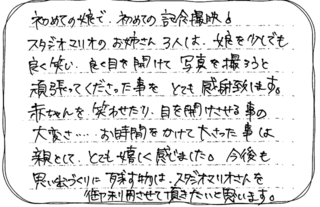 初めての娘で、初めての記念撮映♪
スタジオマリオのお姉さん3人は、娘を少しでも
良く笑い、良く目を開けて写真を撮ろうと
頑張ってくださった事をとても感謝致します。
赤ちゃんを笑わせたり、目を開けさせる事の
大変さ……お時間をかけて下さった事は
親として、とても嬉しく感じました。今後も
思い出づくりに残す物は、スタジオマリオさんを
御利用させて頂きたいと思います。